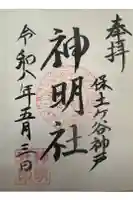 奉拝
保土ケ谷神戸
神明社
令和八年五月三日